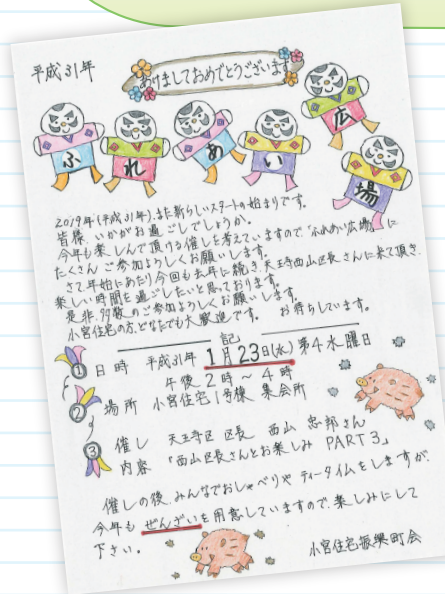 平成31年
あけましておめでとうございます
ふれあい広場
2019年(平成31年)、また新らしいスタートの始まりです。
皆様、いかがお過ごしでしょうか。
今年も楽しんで頂ける催しを考えていますので「ふれあい広場」に
たくさんご参加よろしくお願いします。
さて年始にあたり今回も去年に続き、天王寺西山区長さんに来て頂き、
楽しい時間を過ごしたいと思っております。
是非、多数のご参加ようろしくお願いします。
小宮住宅の方、どなたでも大歓迎です。 お待ちしています。
記
① 日時 平成31年 1月23日(水) 第4水曜日
午後 2時~4時
② 場所 小宮住宅1号棟 集会所
③ 催し 天王寺区 区長 西山 忠邦さん
内容 「西山区長さんとお楽しみ PART3」
催しの後、みんなでおしゃべりや ティータイムをしますが、
今年も ぜんざいを用意していますので、楽しみにして
下さい。
小宮住宅振興町会